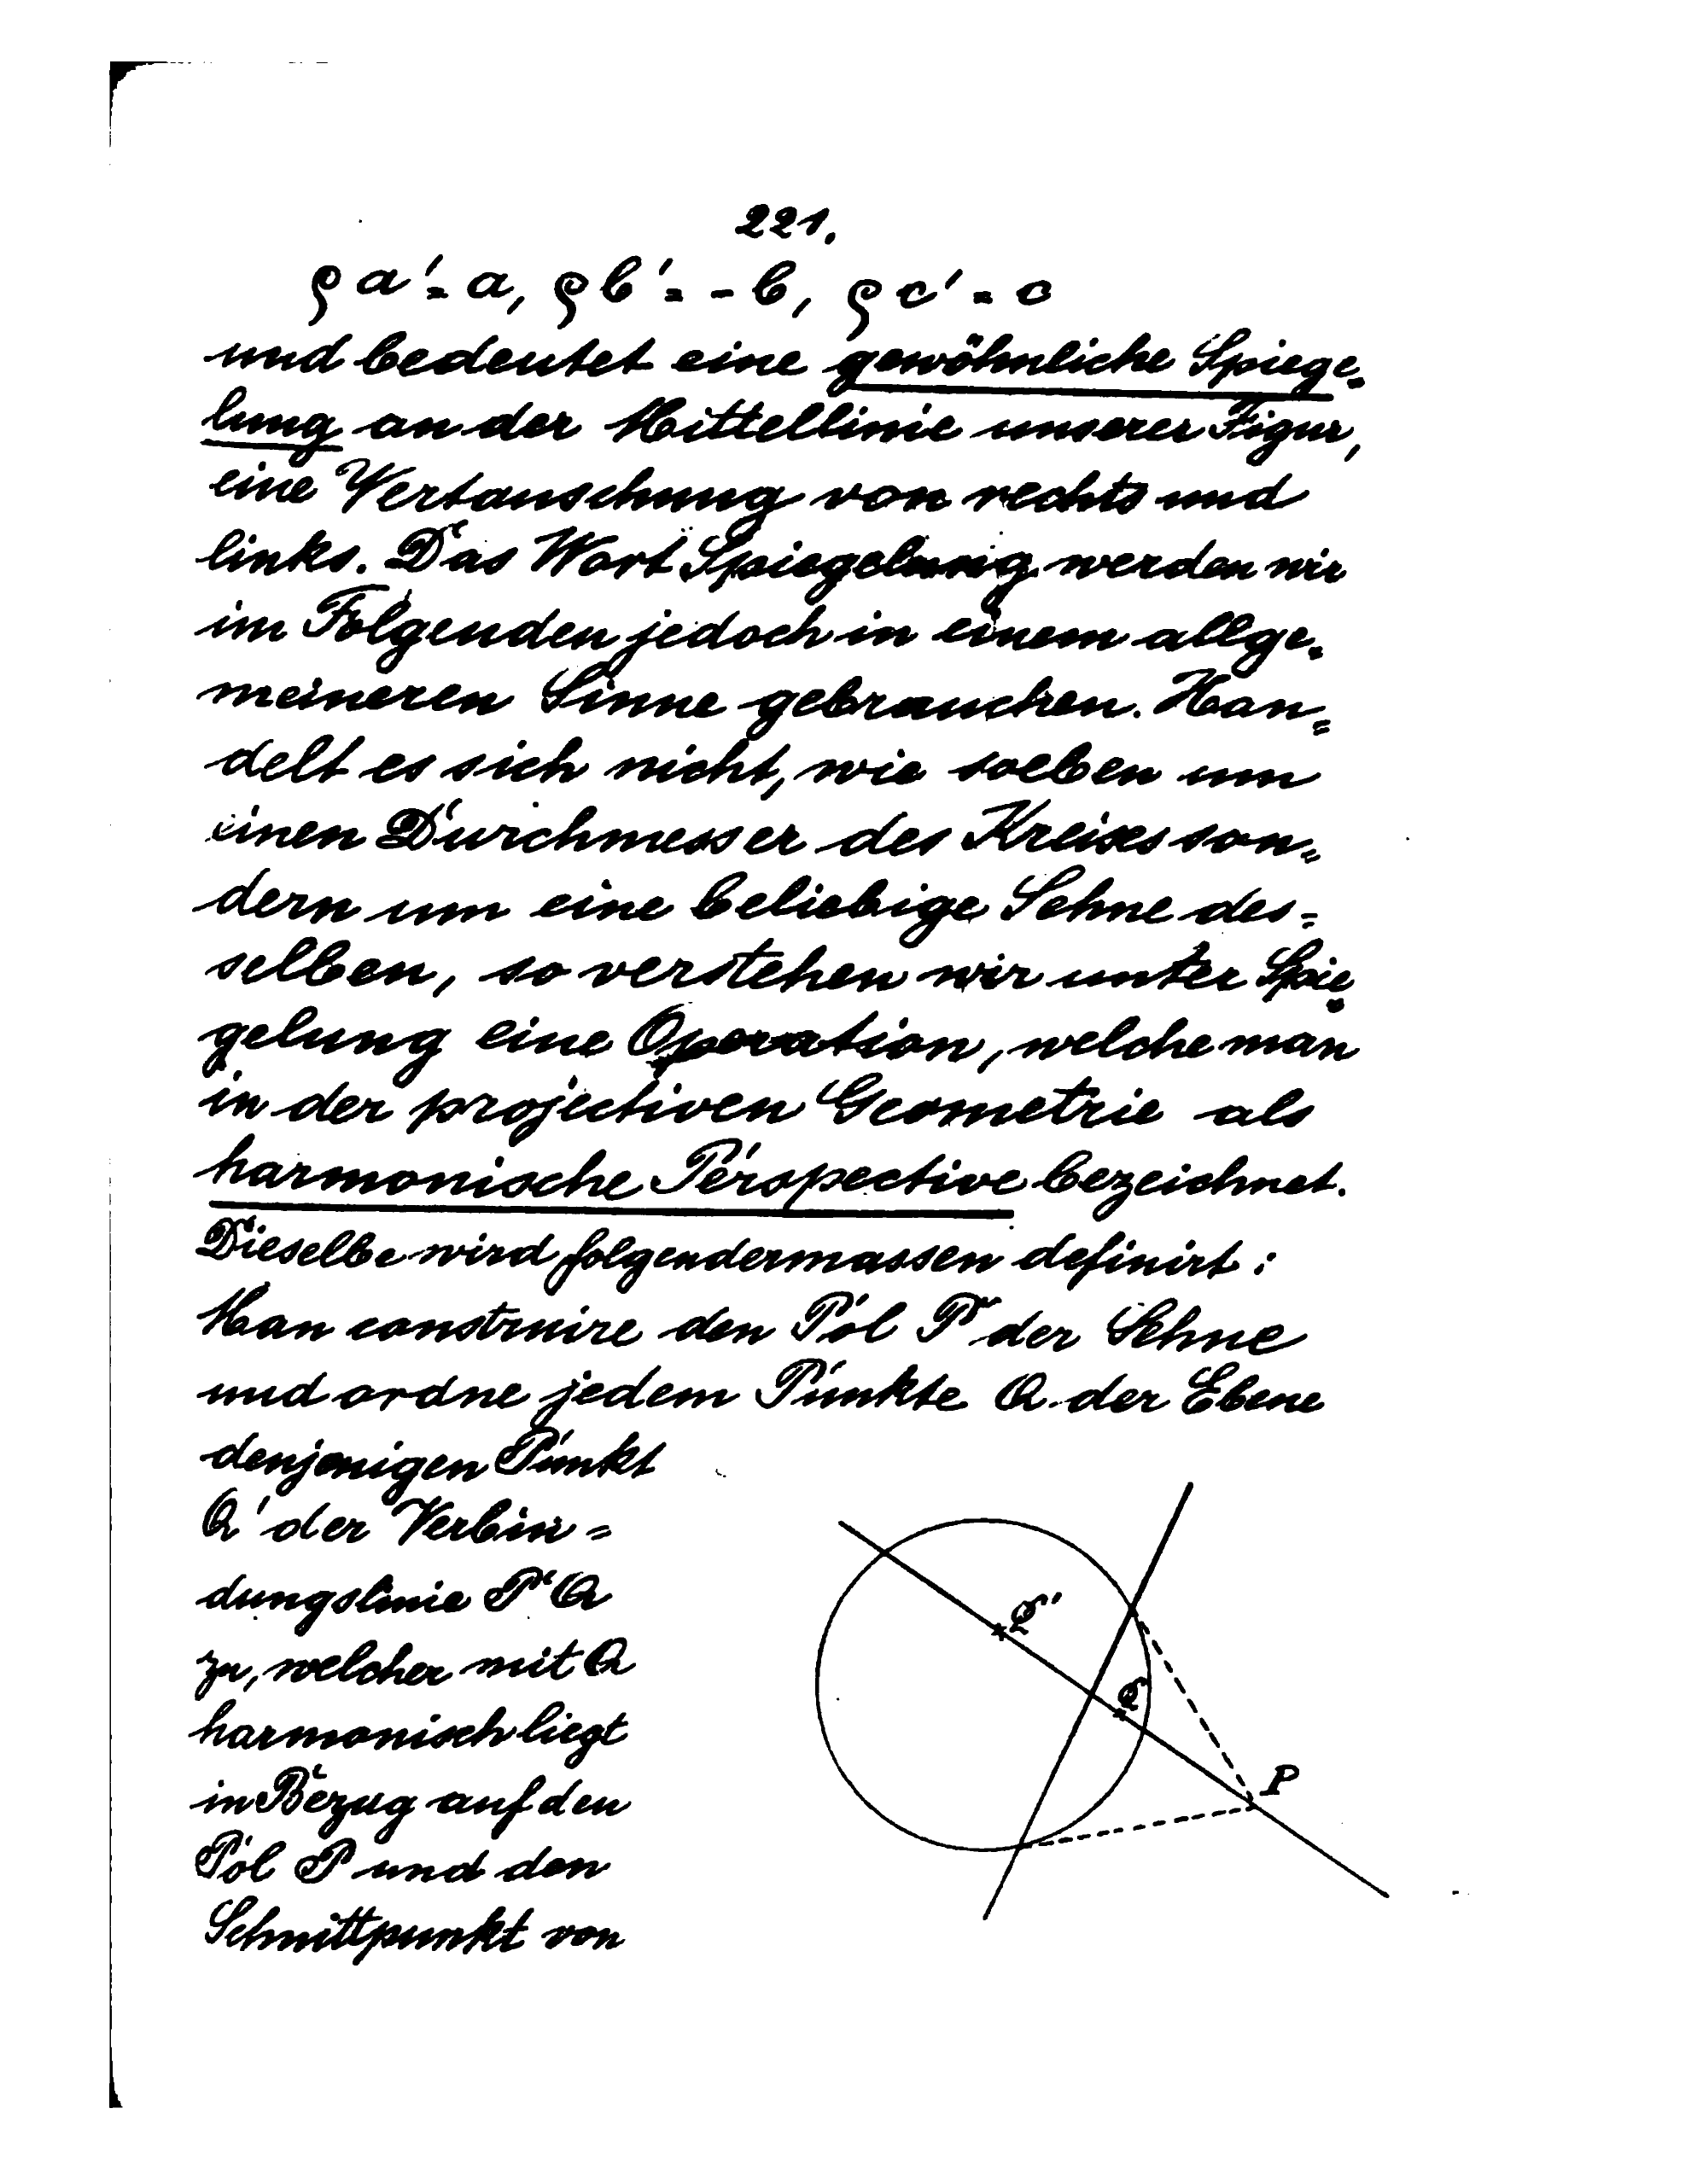 221.
ϱ a' = a, ϱ b' = - b, ϱ c' = c
und bedeutet eine gewöhnliche Spiege-
lung an der Mittellinie unserer Figur,
eine Vertauschung von rechts und
links. Das Wort Spiegelung werden wir
im Folgenden jedoch in einem allge-
meineren Sinne gebrauchen. Han-
delt es sich nicht, wie soeben um
einen Durchmesser des Kreises son-
dern um eine beliebige Sehne des-
selben, so verstehen wir unter Spie-
gelung eine Operation, welche man
in der projectiven Geometrie als
harmonische Perspective bezeichnet.
Dieselbe wird folgendermassen definirt:
Man construire den Pol P der Sehne
und ordne jedem Punkte Q der Ebene
denjenigen Punkt
Q' der Verbin-
dungslinie P Q
zu, welcher mit Q
harmonisch liegt
in Bezug auf den
Pol P und den
Schnittpunkt von
Q'
Q
P